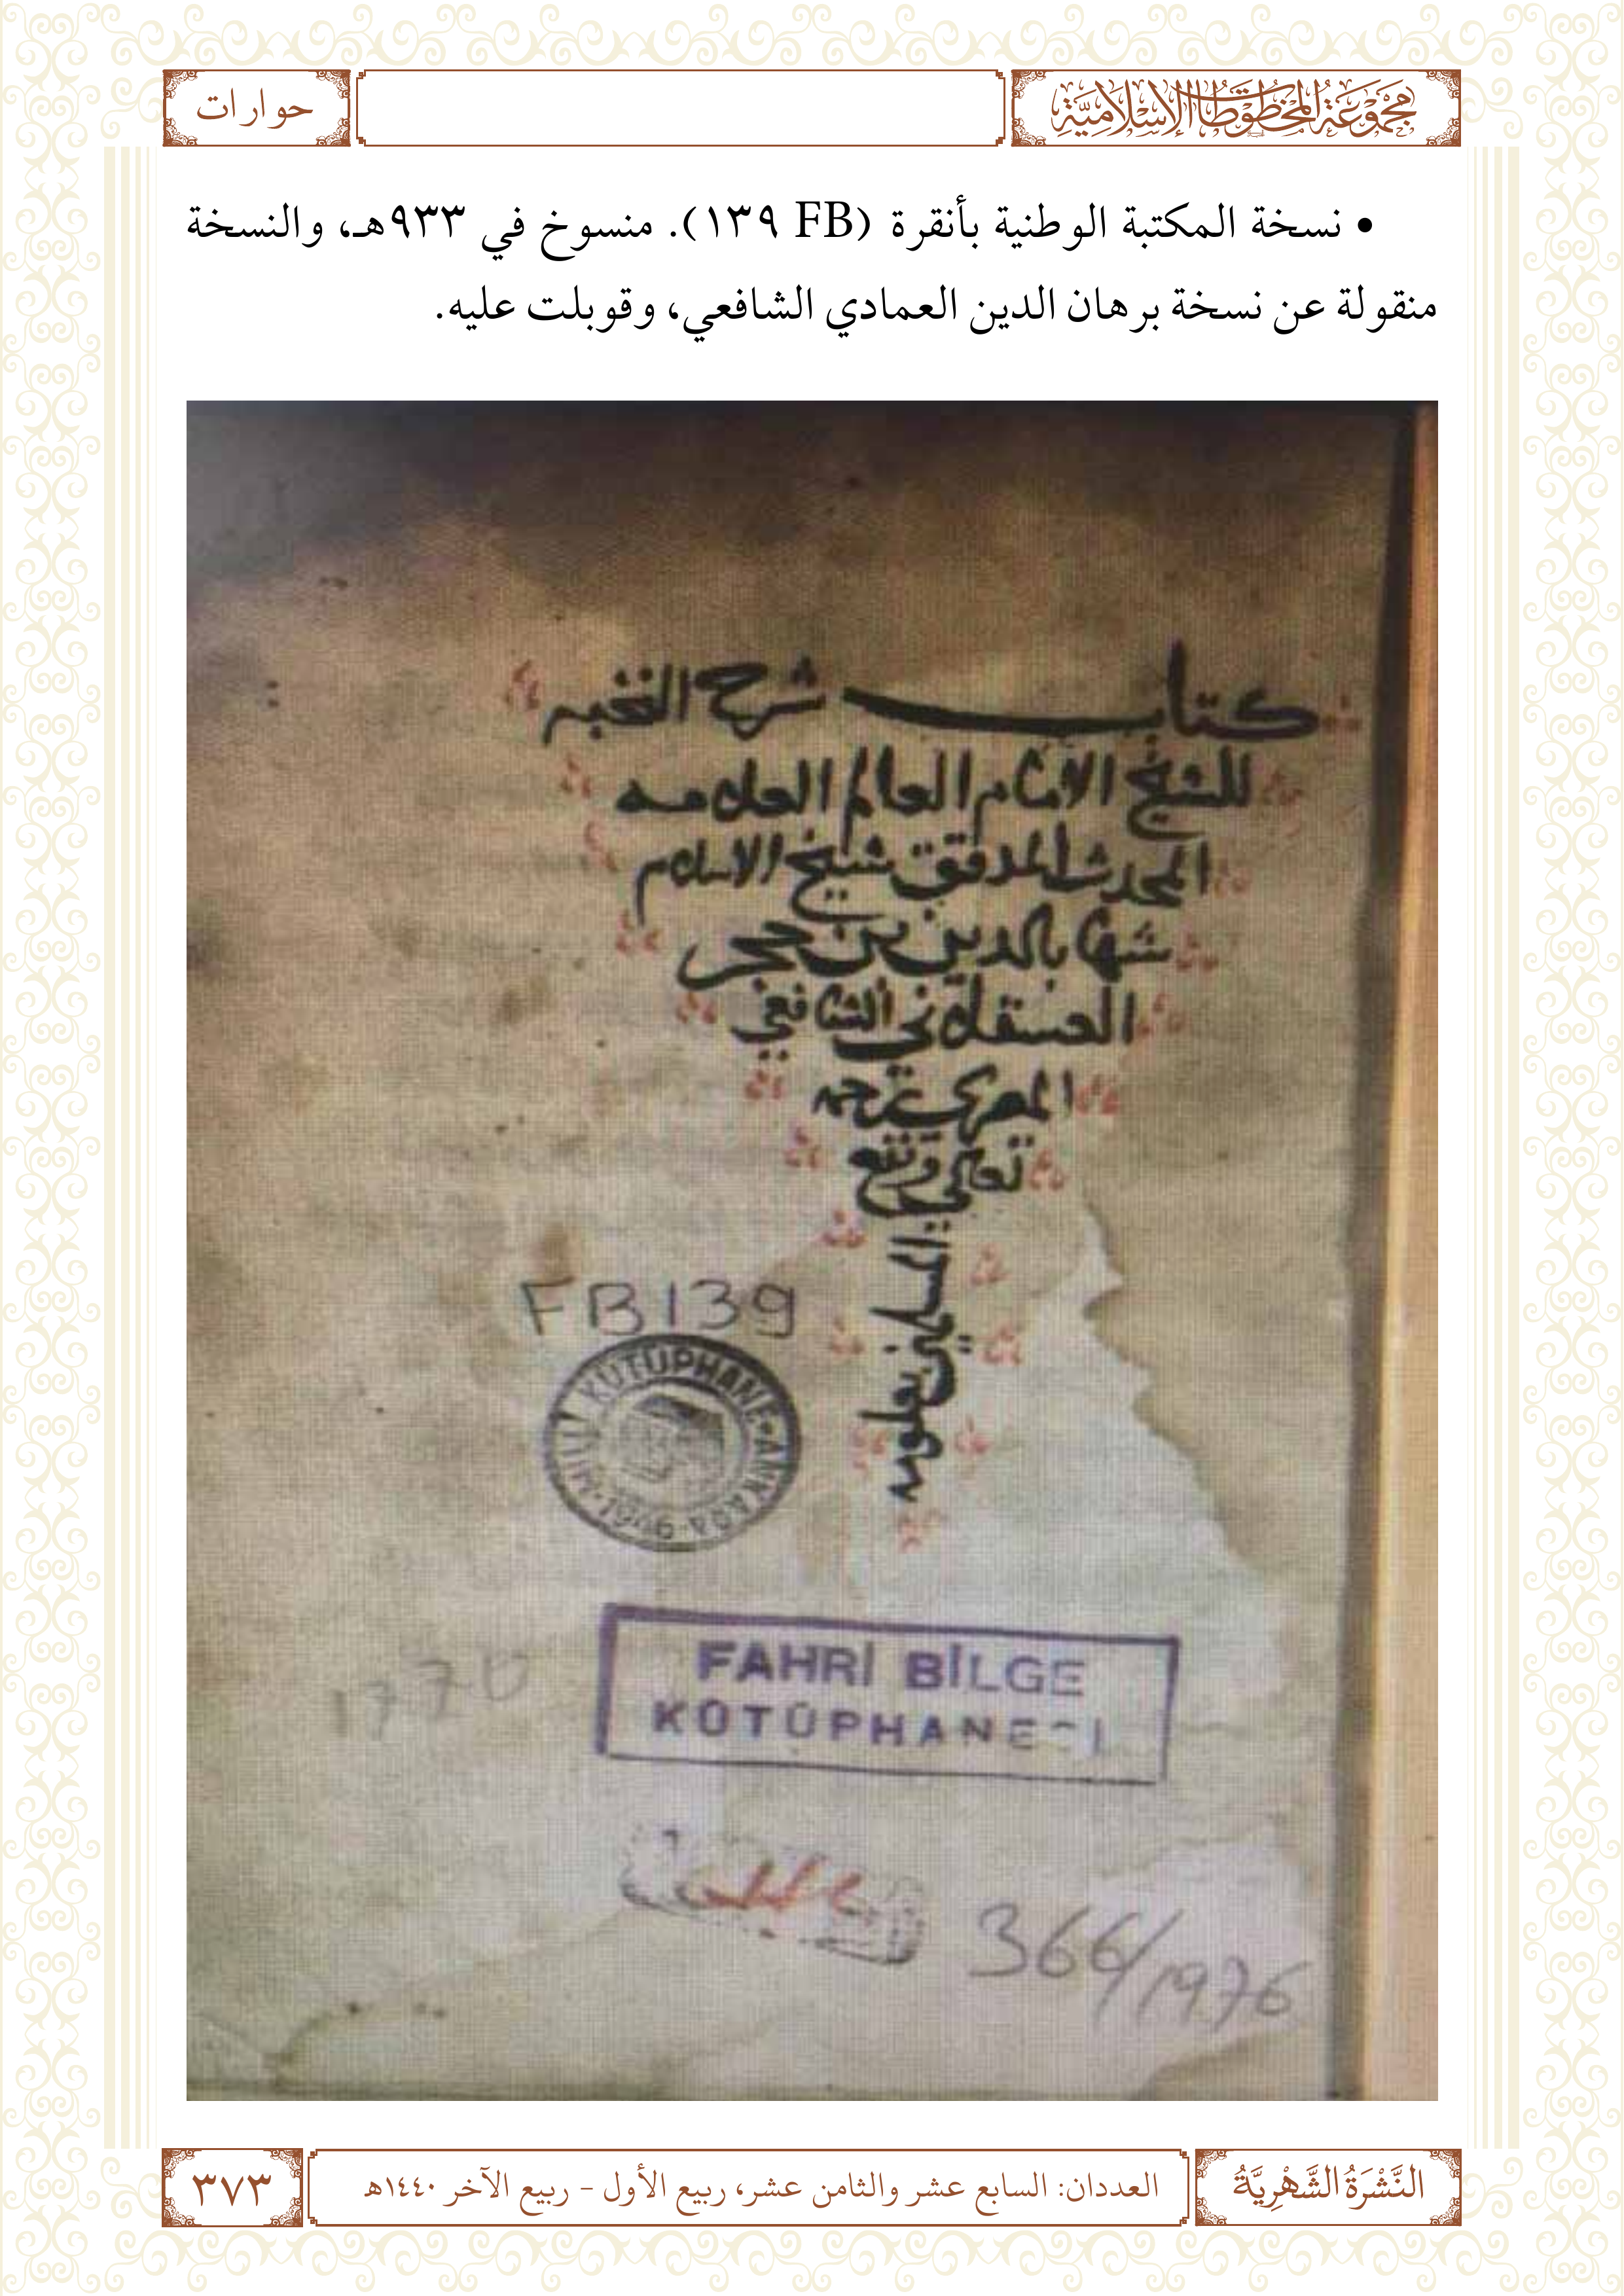 مَجْمُوعَةُ المَخْطُوطَاتِ الإِسْلَامِيَّة
حوارات
• نسخة المكتبة الوطنية بأنقرة (FB ١٣٩). منسوخ في ٩٣٣هـ، والنسخة
منقولة عن نسخة برهان الدين العمادي الشافعي، وقوبلت عليه.
كتاب شرح النخبه
للشيخ الامام العالم العلامه
المحدث المدقق شيخ الاسلام
شهاب الدين بن حجر
العسقلاني الشافعي
المصري رحمه
تعالى ونفع
المسلمين بعلومه
FB 139
MİLLİ KÜTÜPHANE • ANKARA • 1946
FAHRİ BİLGE
KÜTÜPHANESİ
366/1976
النَّشْرَةُ الشَّهْرِيَّةُ
العددان: السابع عشر والثامن عشر، ربيع الأول - ربيع الآخر ١٤٤٠هـ
٣٧٣